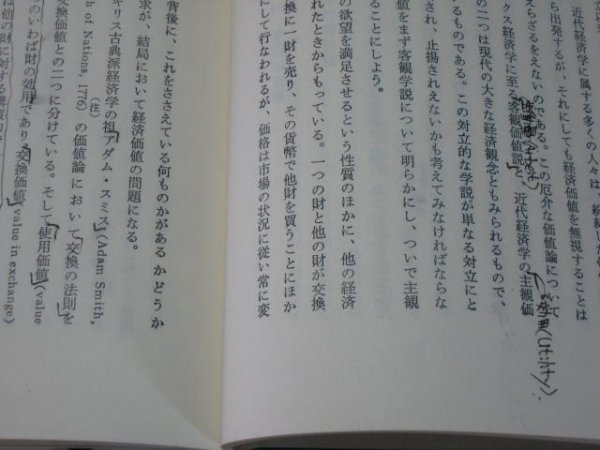 近代経済学に属する多くの人々は、
ら出発するが、それにしても経済価値を無視することは
えらざるをえないのである。この厄介な価値論について
クス経済学に至る客観価値説と、近代経済学の主観価
の二つは現代の大きな経済観念ともみられるもので、
るものである。この対立的な学説が単なる対立にと
され、止揚されえないかも考えてみなければならな
値をまず客観学説について明らかにし、ついで主観
ることにしよう。
の欲望を満足させるという性質のほかに、他の経済
れたときからもっている。一つの財と他の財が交換
換に一財を売り、その貨幣で他財を買うことにほか
にして行なわれるが、価格は市場の状況に従い常に変
背後に、これをささえている何ものかがあるかどうか
求が、結局において経済価値の問題になる。
ギリス古典派経済学の祖アダム・スミス (Adam Smith,
th of Nations, 1776) (注) の価値論において交換の法則を
交換価値との二つに分けている。そして使用価値 (value
のいわば財の効用であり、交換価値 (value in exchange)
(utility)